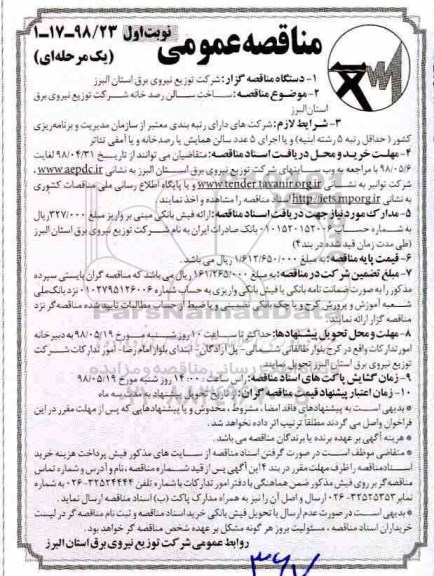 مناقصه عمومی
نوبت اول ۹۸/۲۳-۱۷-۱
(یک مرحله‌ای)
۱- دستگاه مناقصه گزار: شرکت توزیع نیروی برق استان البرز
۲- موضوع مناقصه: ساخت سالن رصد خانه شرکت توزیع نیروی برق
استان البرز
۳- شرایط لازم: شرکت های دارای رتبه بندی معتبر از سازمان مدیریت و برنامه‌ریزی
کشور (حداقل رتبه ۵ رشته ابنیه) و یا اجرای ۵ عدد سالن همایش یا رصدخانه و یا آمفی تئاتر
۴- مهلت خرید و محل دریافت اسناد مناقصه: متقاضیان می توانند از تاریخ ۹۸/۰۴/۳۱ لغایت
۹۸/۰۵/۶ با مراجعه به وب سایتهای شرکت توزیع نیروی برق استان البرز به نشانی www.aepdc.ir،
شرکت توانیر به نشانی www.tender.tavanir.org.ir و یا پایگاه اطلاع رسانی ملی مناقصات کشوری
به نشانی http://iets.mporg.ir اسناد مناقصه را مشاهده و اخذ نمایند
۵- مدارک مورد نیاز جهت دریافت اسناد مناقصه: ارائه فیش بانکی مبنی بر واریز مبلغ ۳۲۷/۰۰۰ ریال
به شماره حساب ۰۱۰۱۵۲۰۱۵۲۰۰۶ بانک صادرات ایران به نام شرکت توزیع نیروی برق استان البرز
(طی مدت زمان قید شده در بند۴)
۶- قیمت پایه مناقصه: به مبلغ ۱/۶۱۲/۶۵۰/۰۰۰ ریال می باشد.
۷- مبلغ تضمین شرکت در مناقصه: به مبلغ ۱۶۱/۲۶۵/۰۰۰ ریال می باشد که مناقصه گران بایستی سپرده
مذکور را به صورت ضمانت نامه بانکی یا فیش بانکی واریزی به حساب شماره ۰۱۰۲۷۹۵۱۲۶۰۰۶ نزد بانک ملی
شعبه آموزش و پرورش کرج و یا چک بانکی تضمینی و یا ضبط از حساب مطالبات تایید شده مناقصه گر نزد
مناقصه گزار ارائه نمایند.
۸- مهلت و محل تحویل پیشنهادها: حداکثر تا ساعت ۱۰ روز شنبه مورخ ۹۸/۰۵/۱۹ به دبیرخانه
امور تدارکات واقع در کرج بلوار طالقانی شمالی- پل آزادگان- ابتدای بلوار امام رضا- امور تدارکات شرکت
توزیع نیروی برق استان البرز تحویل نمایند.
۹- زمان گشایش پاکت های اسناد مناقصه: راس ساعت ۱۴:۰۰ روز شنبه مورخ ۹۸/۰۵/۱۹
۱۰- زمان اعتبار پیشنهاد قیمت مناقصه گران: از تاریخ تحویل پیشنهاد به مدت سه ماه
* بدیهی است به پیشنهادهای فاقد امضا، مشروط، مخدوش و یا پیشنهادهایی که پس از مهلت مقرر در این
فراخوان واصل می گردند مطلقاً ترتیب اثر داده نخواهد شد.
* هزینه آگهی بر عهده برنده یا برندگان مناقصه می باشد.
* متقاضی موظف است در صورت گرفتن اسناد مناقصه از سایت های مذکور فیش پرداخت هزینه خرید
اسناد مناقصه را ظرف مهلت مقرر در بند ۴ این آگهی پس از قید شماره مناقصه، نام و آدرس و شماره تماس
مناقصه گر بر روی فیش مذکور ضمن هماهنگی با دفتر امور تدارکات با شماره تلفن ۳۲۵۲۴۴۴۴-۰۲۶ به شماره
نمابر ۳۲۵۲۵۳۵۳-۰۲۶ ارسال و اصل آن را نیز به همراه مدارک پاکت (ب) اسناد مناقصه ارسال نماید.
* بدیهی است در صورت عدم ارسال یا تحویل فیش بانکی خرید اسناد مناقصه و ثبت نام مناقصه گر در لیست
خریداران اسناد مناقصه، مسئولیت بروز هر گونه مشکل بر عهده شخص مناقصه گر خواهد بود.
روابط عمومی شرکت توزیع نیروی برق استان البرز
۳۶۷